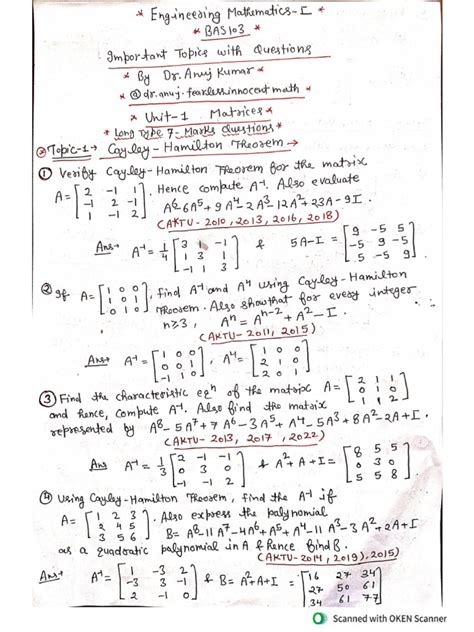 * Engineering Mathematics-I *
* BAS103 *
Important Topics with Questions
* By Dr. Anuj Kumar *
* @dr.anuj.fearlessinnocentmath *
* Unit-1 Matrices *
* Long Type 7-Marks Questions *
Topic-1 → Cayley-Hamilton Theorem →
① Verify Cayley-Hamilton Theorem for the matrix
A = [2 -1 1; -1 2 -1; 1 -1 2]. Hence compute A⁻¹. Also evaluate
A⁶-6A⁵+9A⁴-2A³-12A²+23A-9I.
(AKTU-2010, 2013, 2016, 2018)
Ans→ A⁻¹ = 1/4 [3 1 -1; 1 3 1; -1 1 3] & 5A-I = [9 -5 5; -5 9 -5; 5 -5 9]
② If A = [1 0 0; 1 0 1; 0 1 0], find A⁻¹ and A⁴ using Cayley-Hamilton
Theorem. Also show that for every integer
n≥3, Aⁿ = Aⁿ⁻²+A²-I.
(AKTU-2011, 2015)
Ans→ A⁻¹ = [1 0 0; 0 0 1; -1 1 0], A⁴ = [1 0 0; 2 1 0; 2 0 1]
③ Find the characteristic eqⁿ of the matrix A = [2 1 1; 0 1 0; 1 1 2]
and hence, compute A⁻¹. Also find the matrix
represented by A⁸-5A⁷+7A⁶-3A⁵+A⁴-5A³+8A²-2A+I.
(AKTU-2013, 2017, 2022)
Ans A⁻¹ = 1/3 [2 -1 -1; 0 3 0; -1 -1 2] & A²+A+I = [8 5 5; 0 3 0; 5 5 8]
④ Using Cayley-Hamilton Theorem, find the A⁻¹ if
A = [1 2 3; 2 4 5; 3 5 6]. Also express the polynomial
B = A⁸-11A⁷-4A⁶+A⁵+A⁴-11A³-3A²+2A+I
as a quadratic polynomial in A & hence find B.
(AKTU-2014, 2019), 2015)
Ans→ A⁻¹ = [1 -3 2; -3 3 -1; 2 -1 0] & B = A²+A+I = [16 27 34; 27 50 61; 34 61 77]
Scanned with OKEN Scanner